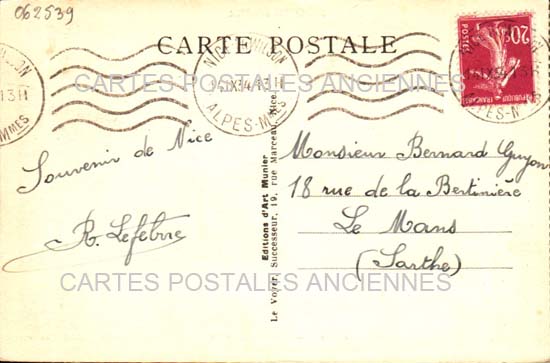 062539
CARTE POSTALE
CARTES POSTALES ANCIENNES
20c
POSTES
REPUBLIQUE FRANÇAISE
13H
ALPES-MMES
Souvenir de Nice
R. Lefebvre
Editions d'Art Munier
Le Voyer, Successeur, 19, rue Marceau, Nice
Monsieur Bernard Guyon
18 rue de la Bertinière
Le Mans
(Sarthe)
CARTES POSTALES ANCIENNES